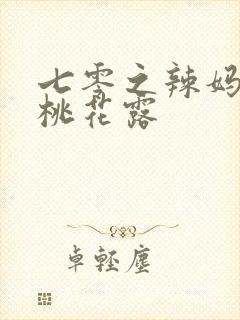 七零之辣妈
桃花露
卓轻尘